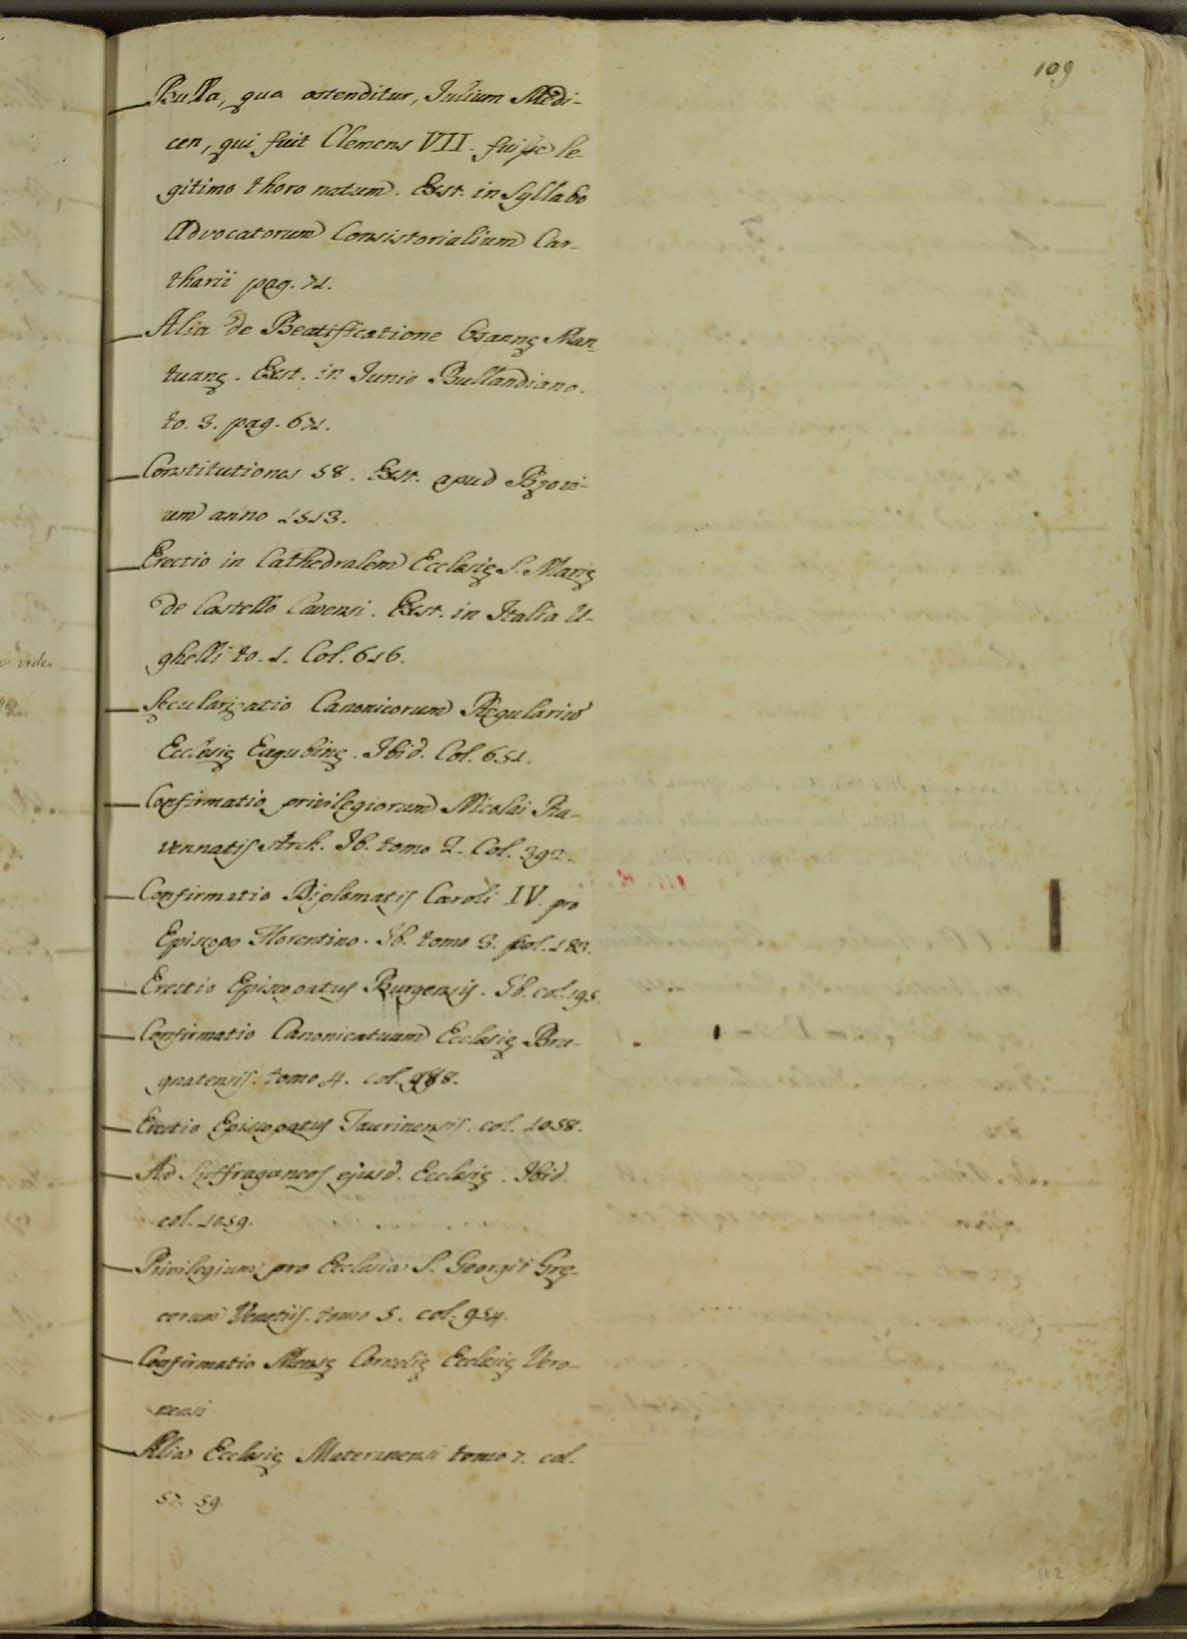 109
Bulla, qua ostenditur, Iulium Medi-
cen, qui fuit Clemens VII. fuisse le-
gitimo thoro natum. Exst. in Syllabo
Advocatorum Consistorialium Car-
tharii pag. 71.
Alia de Beatificatione Osannę Man-
tuanę. Exst. in Iunio Bullandiano.
to. 3. pag. 671.
Constitutiones 58. Exst. apud Bzovi-
um anno 1513.
Erectio in Cathedralem Ecclesię S. Marię
de Castello Cavensi. Exst. in Italia U-
ghelli to. 1. Col. 616.
Sęcularizatio Canonicorum Regularium
Ecclesię Eugubinę. Ibid. Col. 651.
Confirmatio privilegiorum Nicolai Ra-
vennatis Arch. Ib. tomo 2. Col. 392.
Confirmatio Diplomatis Caroli IV. pro
Episcopo Florentino. Ib. tomo 3. fol. 183.
Erectio Episcopatus Burgensis. Ib. col. 195.
Confirmatio Canonicatuum Ecclesię Bru-
gnatensis. tomo 4. col. 988.
Erectio Episcopatus Taurinensis. col. 1058.
Ad Suffraganeos ejusd. Ecclesię. Ibid.
col. 1059.
Privilegium pro Ecclesia S. Georgii Grę-
corum Venetiis. tomo 5. col.
Confirmatio Mensę Ecclesię Vero-
nensi
Alia Ecclesię tomo 7. col.
57. 59.
112